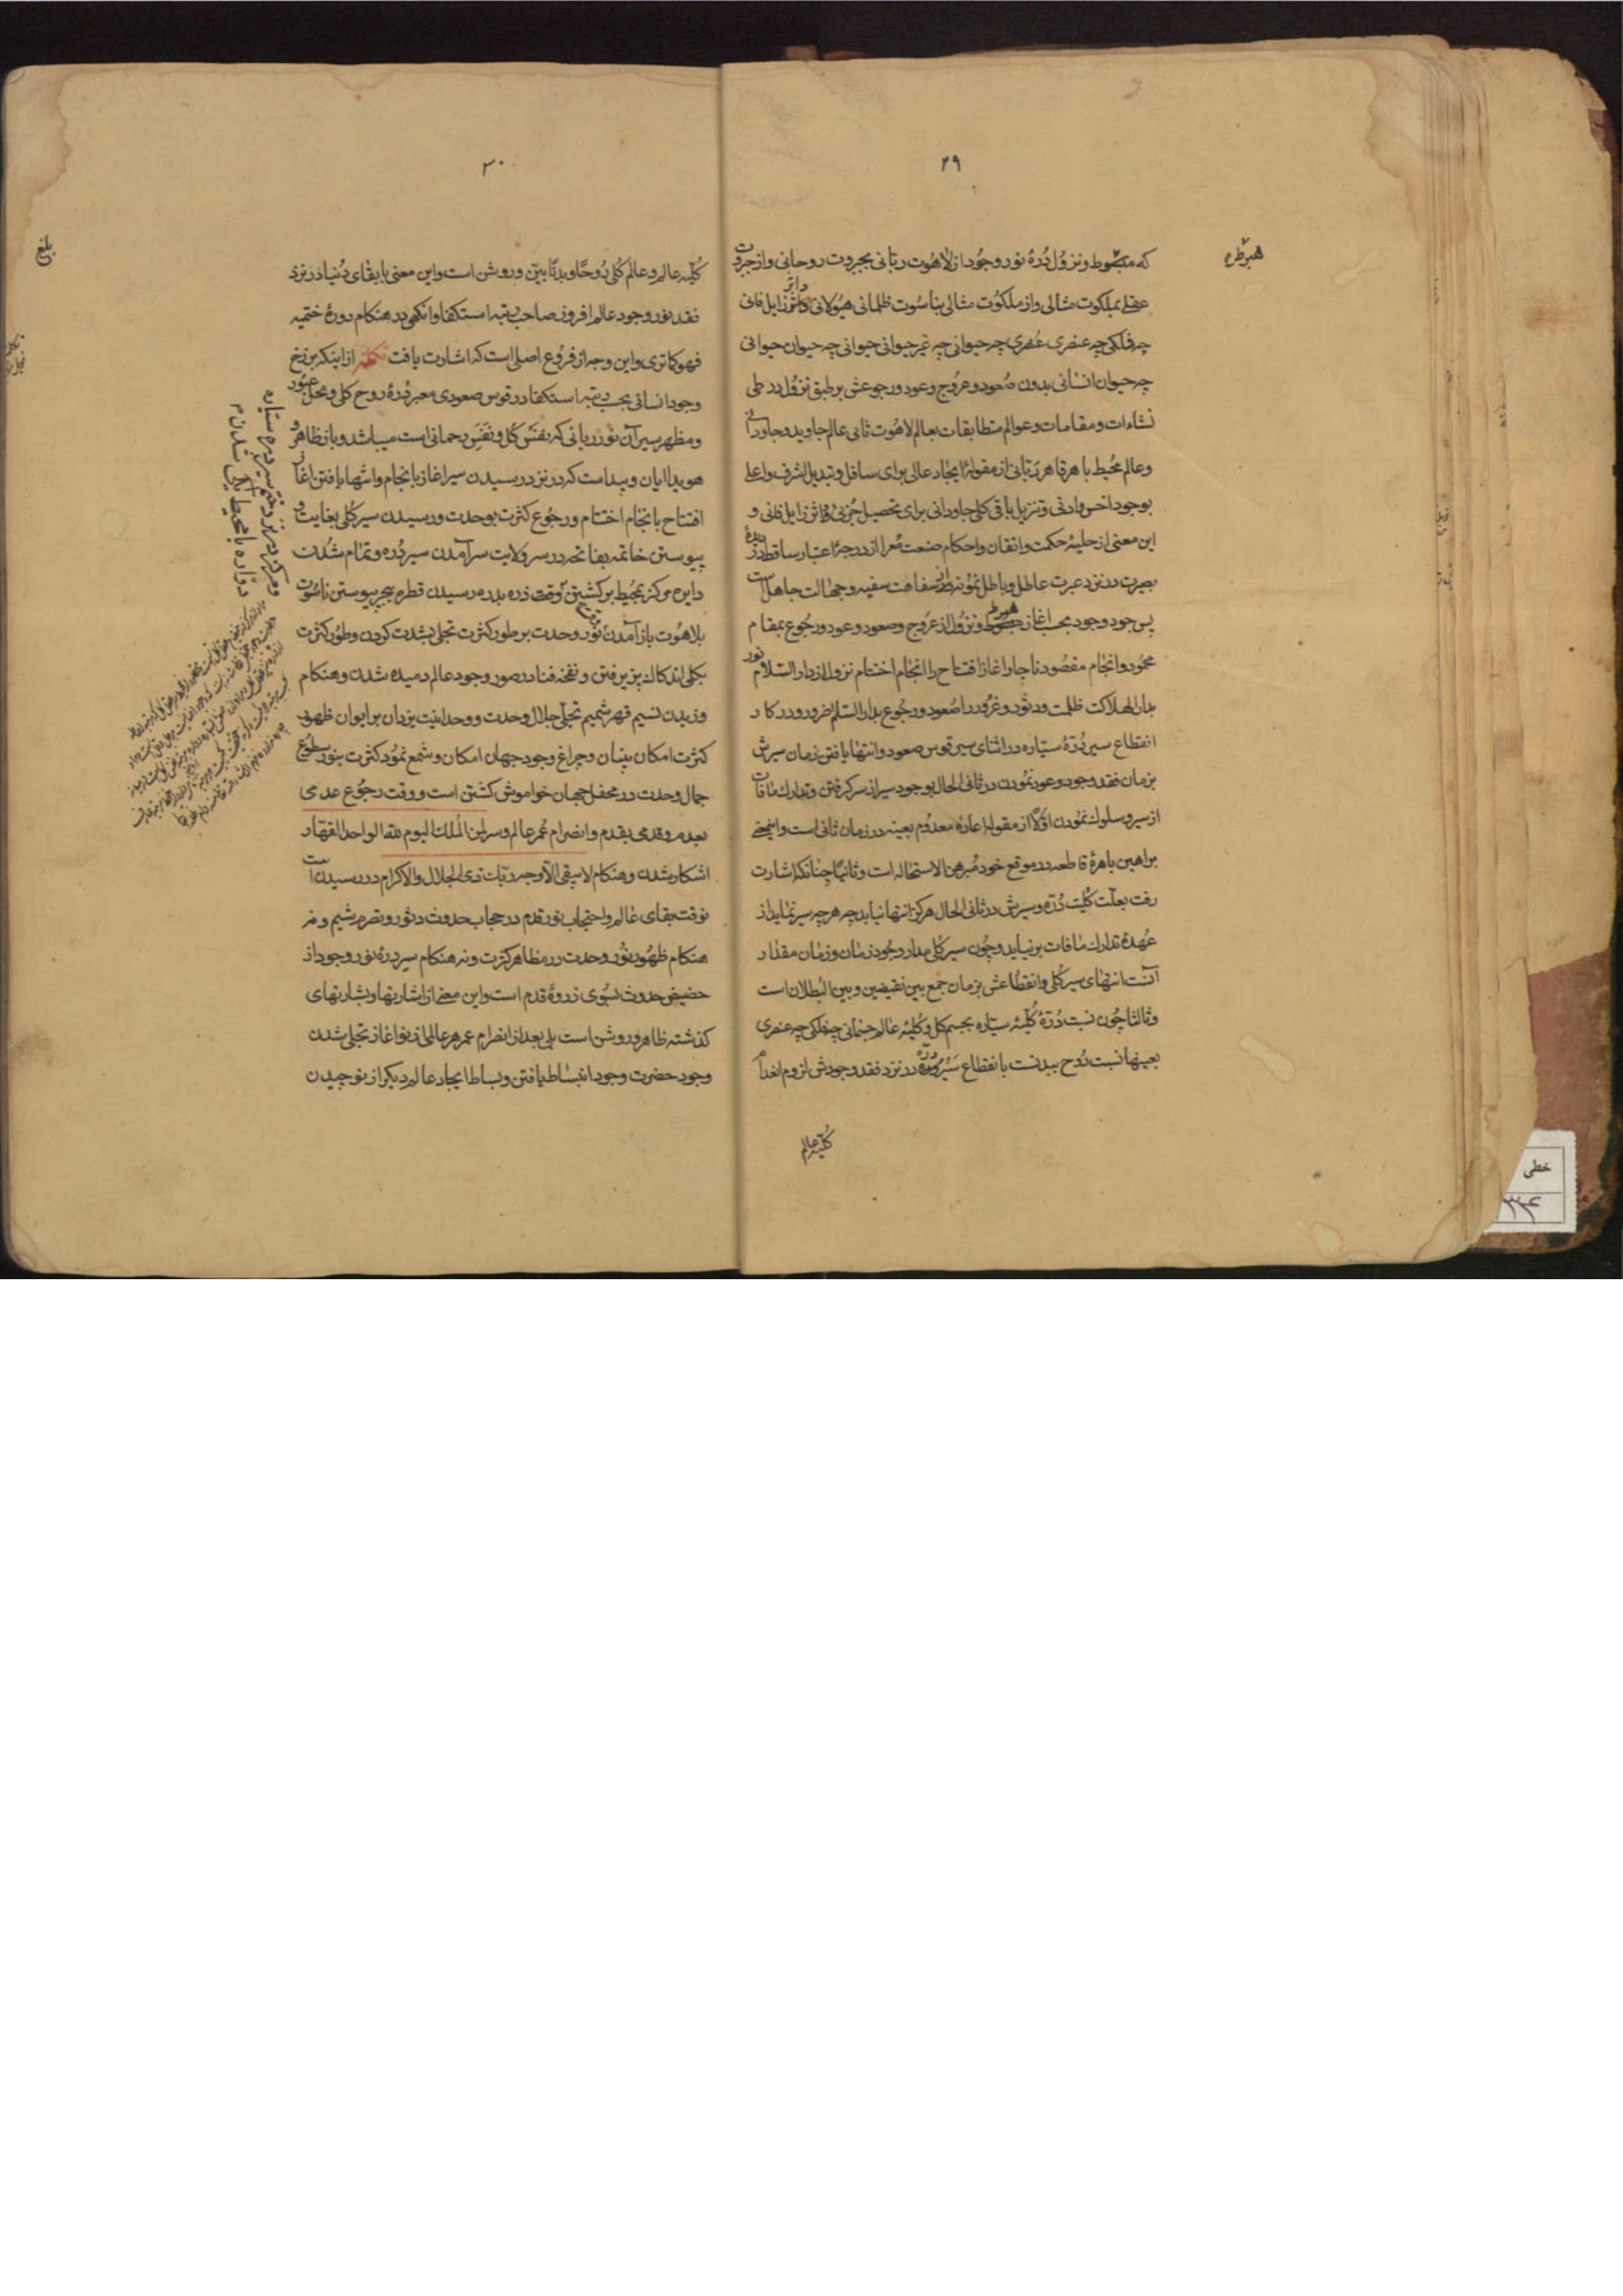 ۲۹
هبوط ره
که هبوط و نزول دُرهٔ نور وجود از لاهوت ربانی بجبروت روحانی و از جبروت
عقلی بملکوت مثالی و از ملکوت مثالی بناسوت ظلمانی هیولانی داثر زایل فانی
چه فلکی چه عنصری عنصری چه حیوانی چه غیر حیوانی حیوانی چه حیوان حیوانی
چه حیوان انسانی بدون صعود و عروج و عود و رجوعش بر طبق نزول در طی
نشاءات و مقامات و عوالم متطابقات بعالم لاهوت ثانی عالم جاوید و جاودانی
و عالم محیط باهر قاهر ربانی از مقولهٔ ایجاد عالی برای سافل و تبدیل اشرف و اعلی
بوجود اخس و ادنی و تنزیل باقی کلی جاودانی برای تحصیل جزئی داثر زایل فانی و
این معنی از حلیهٔ حکمت و اتقان و احکام صنعت معرا از درجهٔ اعتبار ساقط در دیدهٔ
بصیرت در نزد عبرت عاطل و باطل نمونه از سفاهت سفیه و جهالت جاهل است
پس جود وجود بحسب اغاز هبوط و نزول از عروج و صعود و عود و رجوع بمقام
محمود و انجام مقصود ناچار و اغاز افتتاح را انجام اختتام نزول از دار السلام نور
بدار الهلاکت ظلمت و دثور و غرور را صعود و رجوع بدار السلام ضرور و در کار
انقطاع سیر دُرّهٔ سیاره در اثنای سیر قوس صعود و انتها یافتن زمان سیرش
بزمان فقد وجود و عود نمودن در ثانی الحال بوجود سیر از سر گرفتن و تدارک مافات
از سیر و سلوک نمودن اوّلاً از مقولهٔ اعادهٔ معدوم بعینه در زمان ثانی است و اینمعنی
براهین باهرهٔ قاطعه در موقع خود مبرهن الاستحاله است و ثانیاً چنانکه اشارت
رفت بعلت کلیت دُرّه و سیرش در ثانی الحال هرگز انتها نیابد چه هر چه سیر نماید از
عهدهٔ تدارک مافات بر نیاید و چون سیر کلی مدار وجود زمان و زمان مقدار
آنست انتهای سیر کلی و انقطاعش بزمان جمع بین نقیضین و بین البطلان است
و ثالثا چون نسبت دُرّهٔ کلیهٔ سیّاره بجسم کل و کلیهٔ عالم جسمانی چه فلکی چه عنصری
بعینها نسبت روح ببدنست بانقطاع سیر دره در نزد فقد وجودش لزوم انعدام
کلیّه عالم
۳۰
بلغ
کلیّه عالم و عالم کلی روحاً و بدناً بیّن و روشن است و این معنی با بقای دنیا در نزد
فقد نور وجود عالم افروز صاحب رتبه استکفا و انگهی در هنگام دورهٔ ختمیه
فهو کما تری و این وجه از فروع اصلی است که اشارت یافت تکمله از اینکه برزخ
وجود انسانی بحسب رتبه استکفا در قوس صعودی معبر دُرهٔ روح کلی و محل عبور
و مظهر سیر آن نور ربانی که نفس کل و نَفَس رحمانی است میباشد و باز ظاهر و
هویدا ایان و پیداست که در نزد رسیدن سیر اغاز بانجام و انتها یافتن اغاز
افتتاح بانجام اختتام و رجوع کثرت بوحدت و رسیدن سیر کلی بغایت و
پیوستن خاتمه بفاتحه در سر ولایت سرآمدن سیر دُره و تمام شدن
دایره مرکز بمحیط برگشتن وقت ذره بدره رسیدن قطره ببحر پیوستن ناسوت
بلاهوت باز آمدن نور وحدت بر طور کثرت تجلی بشدت کردن و طور کثرت
بکلی اندکاک پذیرفتن و نفخه فنا در صور وجود عالم دمیده شدن و هنگام
وزیدن نسیم قهر شمیم تجلی جلال وحدت و وحدانیت یزدان بر ایوان ظهور
کثرت امکان بنیان و چراغ وجود جهان امکان و شمع نمود کثرت بنور سطوع
جمال وحدت در محفل جهان خواموش کشتن است و وقت رجوع عدمی
بعدم و قدمی بقدم و انصرام عمر عالم و سر لمن الملک الیوم لله الواحد القهار
اشکار شدن و هنگام لا یبقی الا وجه ربک ذی الجلال و الاکرام در رسیدن است
نوقت بقای عالم و احتجاب نور قدم در حجاب حدوث دثور و تصرم شیم و نه
هنگام ظهور نور وحدت در مظاهر کثرت و نه هنگام سیر درهٔ نور وجود از
حضیض حدوث بسوی ذروهٔ قدم است و این معنی از اشارتها و بشارتهای
گذشته ظاهر و روشن است بلی بعد از انصرام عمر هر عالمی از نو اغاز تجلی شدن
وجود حضرت وجود انبساط یافتن و بساط ایجاد عالم دیگر از نو چیدن
و مرکز در نزد ختم سیر دره سیاره
دوّاره با محیط یکی شدن م
خطی